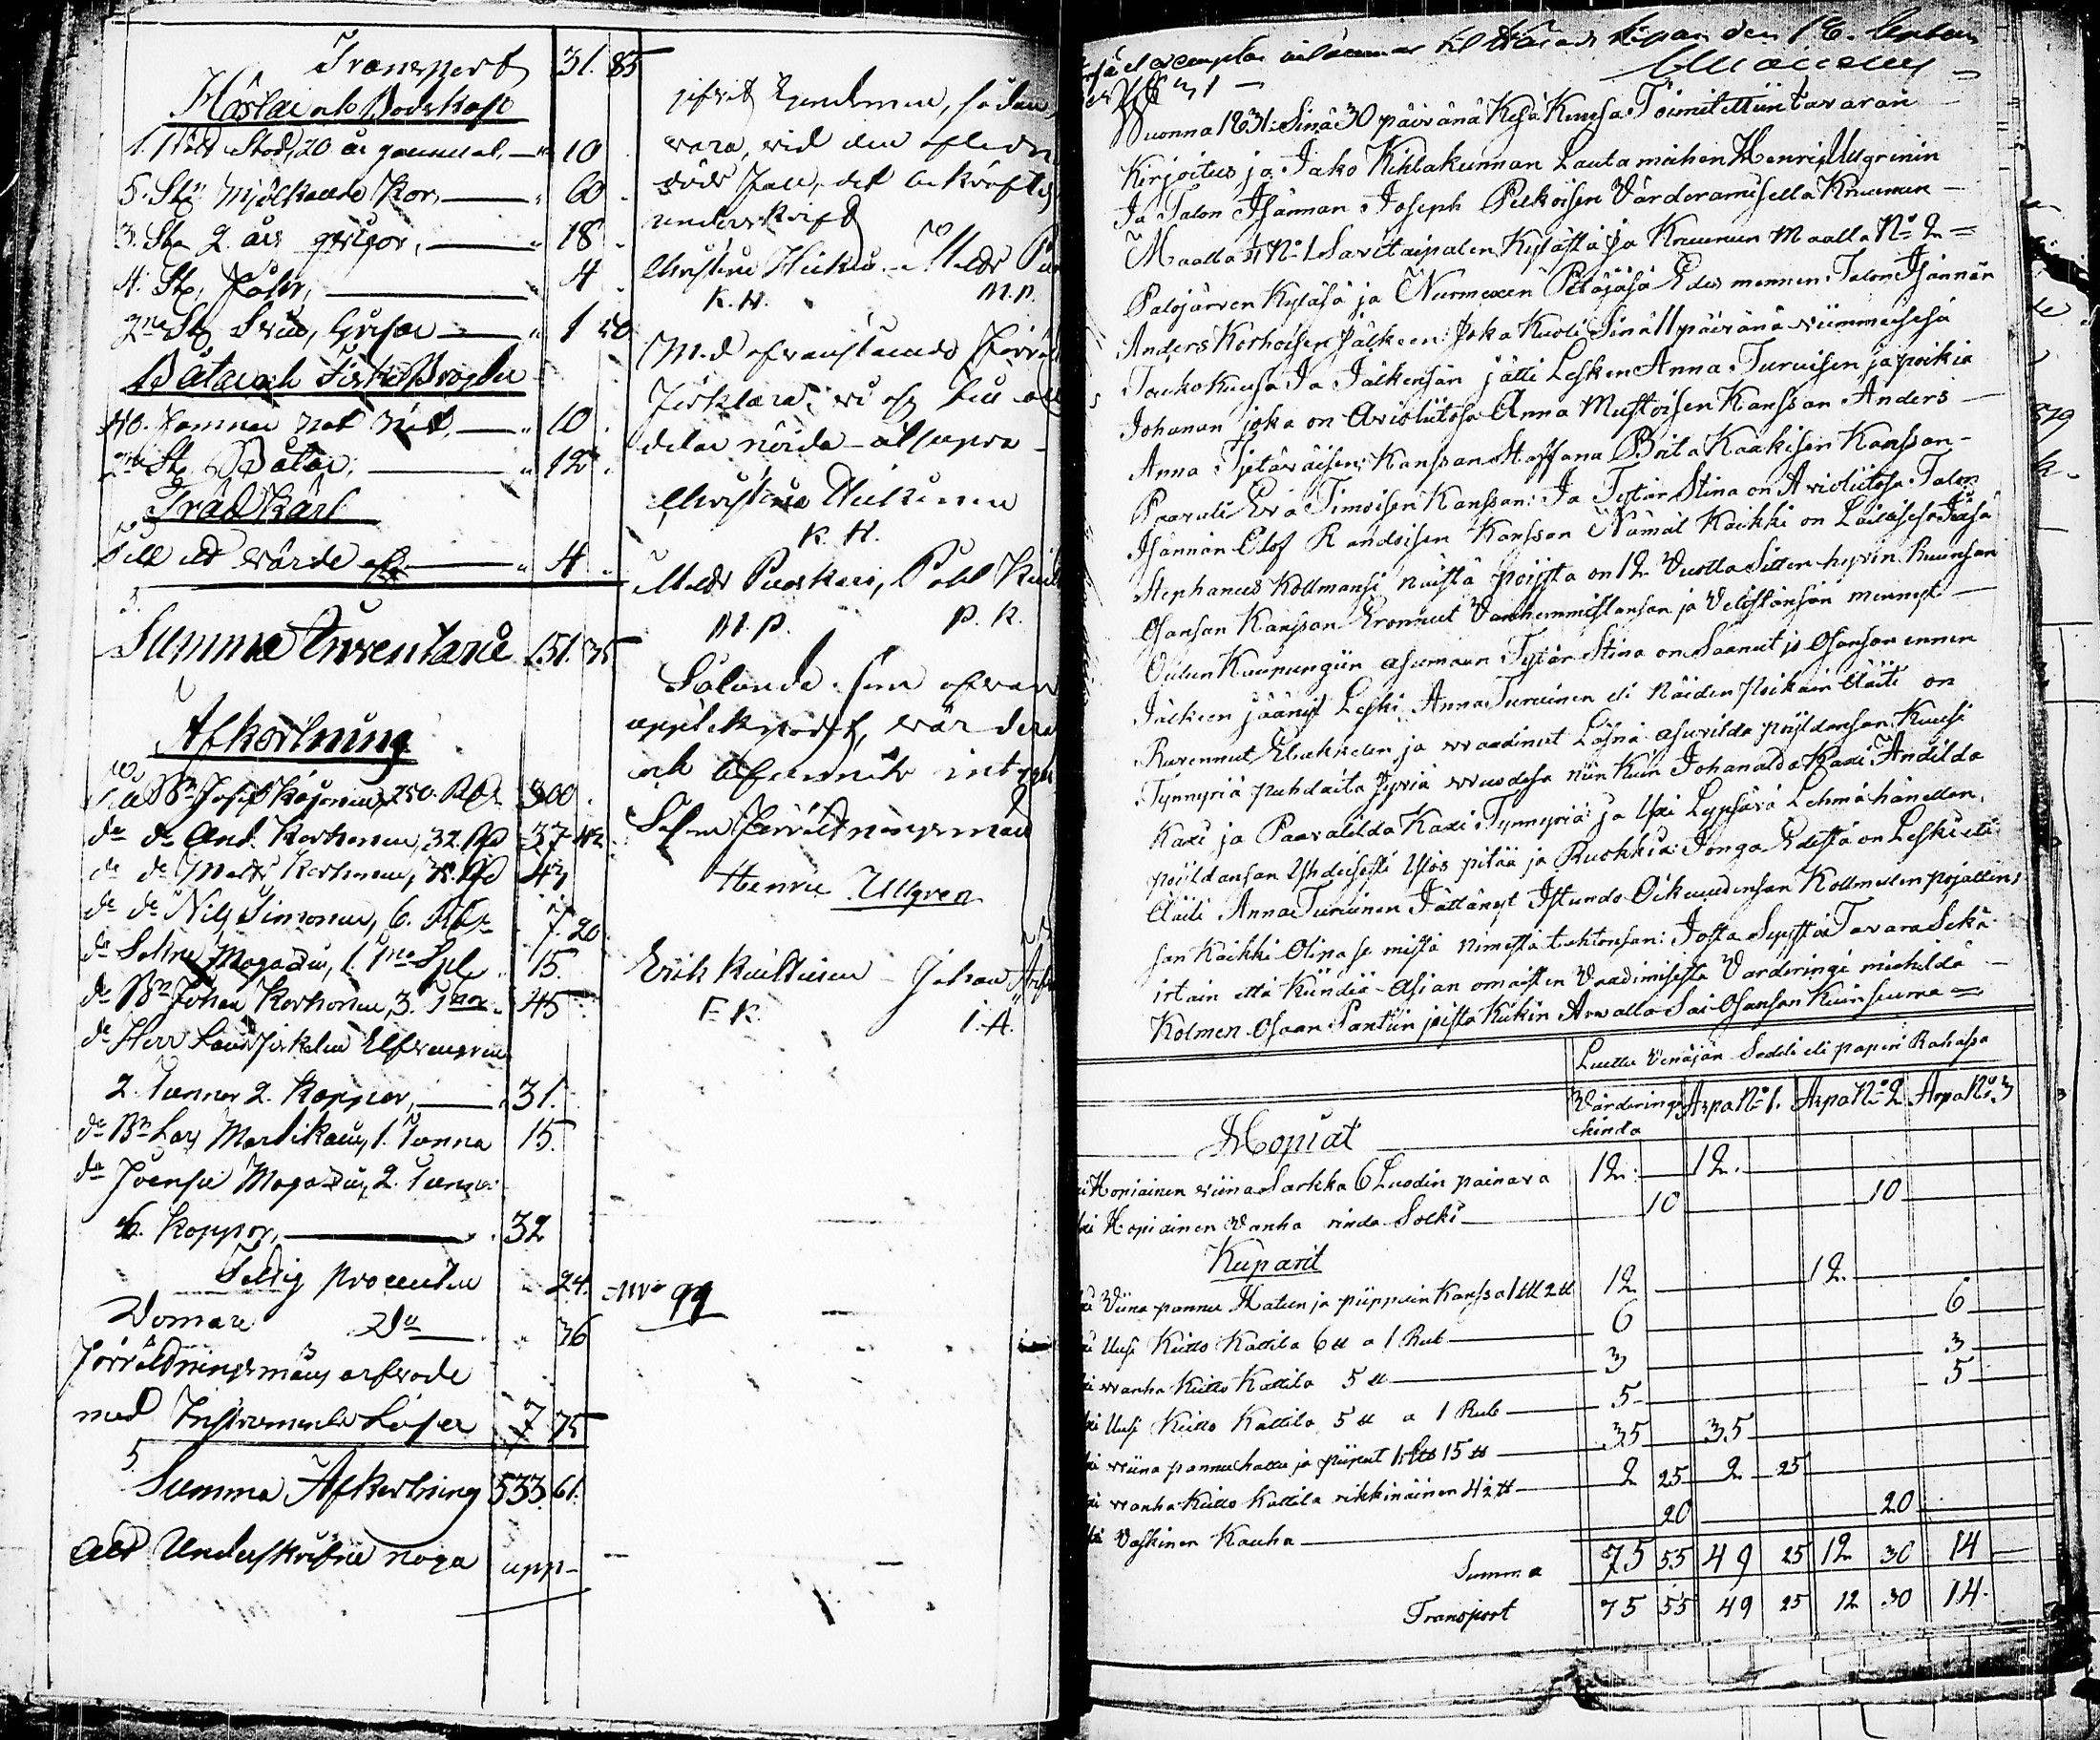 Transport 31. 85
Hästar och Boskap
1. st Stod, 20 år gammal, 10
5. St. Mjölkande Kor, 60
3. St. 2 års qvigor, 18
4. St. Fåhr, 4
2ne St. Svin, Grisar 1 50
Båtar och Fiske Bragder
40. Famnar Not 10
2ne St. Båtar, 12
Träd Kärl
Till ett värde af 4
Summa Inventarie 151. 35
Afkortning
Till Bn Josef 250. Rd 300
do do And. Korhonen, 32. Rd 37 42
do do Matts Korhonen, Rd 43
do do Nils Simonen, 6. Rd 7 20
do Sockne Magazin, 1. Tna Spl. 15.
do Bn Johan Korhonen, 3. Tnor 45
do Herr Landsfiskalen Elfvengren
2. Tunnor 2. Kappar, 31.
do Bn Lars Martikain, 1. Tunna 15.
do Joensu Magazin, 2. Tunnor
6. Kappor, 32
Fattig Procenten 24.
Domare Do 36
Förrättningsmäns arfvode
med Instruments Lösen 7 75
Summa Afkortning 533. 61.
Att Underskrifne noga upp-
gifvit Egendomen, sådan
vara, vid den
död Fall, det bekräftas
underskrift
Christina Hiltunen Matts
K. H. M. P.
Med ofvanstående
Förklara, vi oss till
delar nöjda - at supra
Christina Hiltunen
K. H.
Matts Puoskari, Påhl
M. P. P. K.
Således som ofvan
upptecknadt, värderadt
och befunnits intygar
Som Förrättningsmän
Henric Ullgren
Erik Kiiskinen Johan
E. K. I. A.
No 99
exemplar inlemnar til Härads kipan den 18.
No 1
Wuonna 1831: Sinä 30 päivänä Kesä Kuusa Toimitettiin tavaran
Kirjoitus ja Jako Kihlakunnan Lauta miehen Henrig Ullgrinin
Ja Talon Isännän Joseph Pelkoisen Värderamisella Kruunun
Maalla No 1 Savitaipalen Kylästä ja Kruunun Maalla No 2
Palojärven Kyläsä ja Nurmexen Pitäjäsä Edes mennen: Talon Isännän
Anders Korhoisen Jälkeen: Joka Kuoli Sinä 11 päivänä viimmeisesä
Touko Kuusa Ja Jälkensän jätti Lesken Anna Turuisen ja poikia
Johanan joka on Avioliitosa Anna Mustoisen Kanssan Anders
Anna Tjetäväisen, Kanssan Staffana Brita Kaakisen Kanssan
Paavali Eva Timoisen Kanssan: Ja Tytär Stina on Avioliitosa Talon
Isännän Olof Randoisen Kanssan Nämät Kaikki on Lailisesa Jäsä
Stephanus Kollmansi näistä pojista on 12 Vuotta Sitten hyvin Ruunsan
Osansan Kanssan Eronnut Vanhemmistansan ja Velistänsän mennyt
Oulun Kaupungiin asumaan Tytär Stina on Saanut jo Osansan ennen
Jälkeen jäänyt Leski Anna Turuinen eli Näiden poikain Äiti on
Ruvennut Eläkeelen ja vaadinut Läsnä asuvilda pojildansan Kuusi
Tynnyriä puhdaita Jyviä vuodesa niin kuin Johanalda Kaxi Andilda
Kaxi ja Paavalilda Kaxi Tynnyriä: ja Yxi Lypsävä Lehmä hänellen,
pojildansan Yhdeisesti Ylös pitää ja Ruokkia: Jonga Edestä on Leski eli
Äiti Anna Turuinen Jättänyt Istundo Oikeudensan Kollmellen pojallen
san Kaikki Olipa se mistä nimestä tahtonsan: Josta Sysstä Tavara Sekä
irtain että Kiindiä Asian omaisten Vaadimisesta Varderingi miehildä
Kolmen Osaan Pantiin joista Kukin Arvalla Sai Osansan Kuin seuraa
Luettu Venäjän Sedeli eli paperi Rahassa
Värderingi hinda Arpa No 1. Arpa No 2 Arpa No 3
Hopiat
Hopiainen viina Sarkka 6 Luodin painava 12. 12.
Hopiainen Vanha rinda Solki 10 10
Kuparit
Viina pannu Hatun ja piippuin Kanssa 12 12.
Uusi Kiitto Kattila 6 ℔ a 1 Rub 6 6
vanha Kiitto Kattila 5 ℔ 3 3
Uusi Kiitto Kattila 5 ℔ a 1 Rub 5 5
viina pannu hattu ja piiput 15 ℔ 35 35
vanha Kiitto Kattila rikkinäinen 4½ ℔ 2 25 2 25
Vaskinen Kauha 20 20
Summa 75 55 49 25 12 30 14
Transport 75 55 49 25 12 30 14.